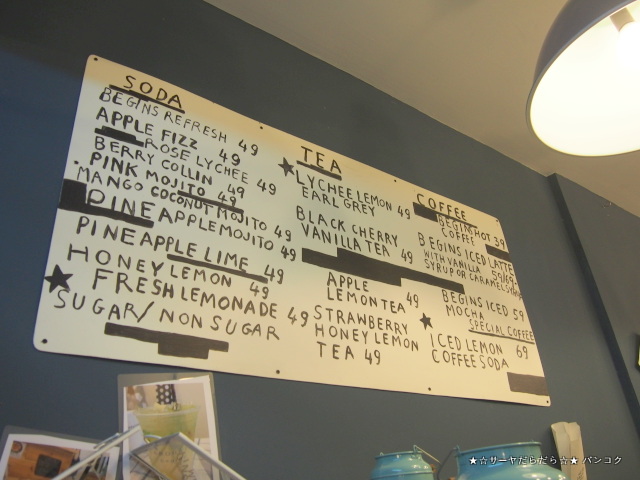 SODA
BEGINS REFRESH 49
APPLE FIZZ 49
ROSE LYCHEE 49
BERRY COLLIN 49
PINK MOJITO 49
MANGO COCONUT MOJITO 49
PINEAPPLE MOJITO 49
PINEAPPLE LIME 49
HONEY LEMON 49
FRESH LEMONADE 49
SUGAR/NON SUGAR
TEA
LYCHEE LEMON 49
EARL GREY
BLACK CHERRY
VANILLA TEA 49
APPLE
LEMON TEA 49
STRAWBERRY
HONEY LEMON
TEA 49
COFFEE
BEGINS HOT 39
COFFEE
BEGINS ICED LATTE
WITH VANILLA 59/69
SYRUP OR CARAMEL SYRUP
BEGINS ICED 59
MOCHA
SPECIAL COFFEE
ICED LEMON 69
COFFEE SODA
★☆サーヤだらだら☆★ バンコク